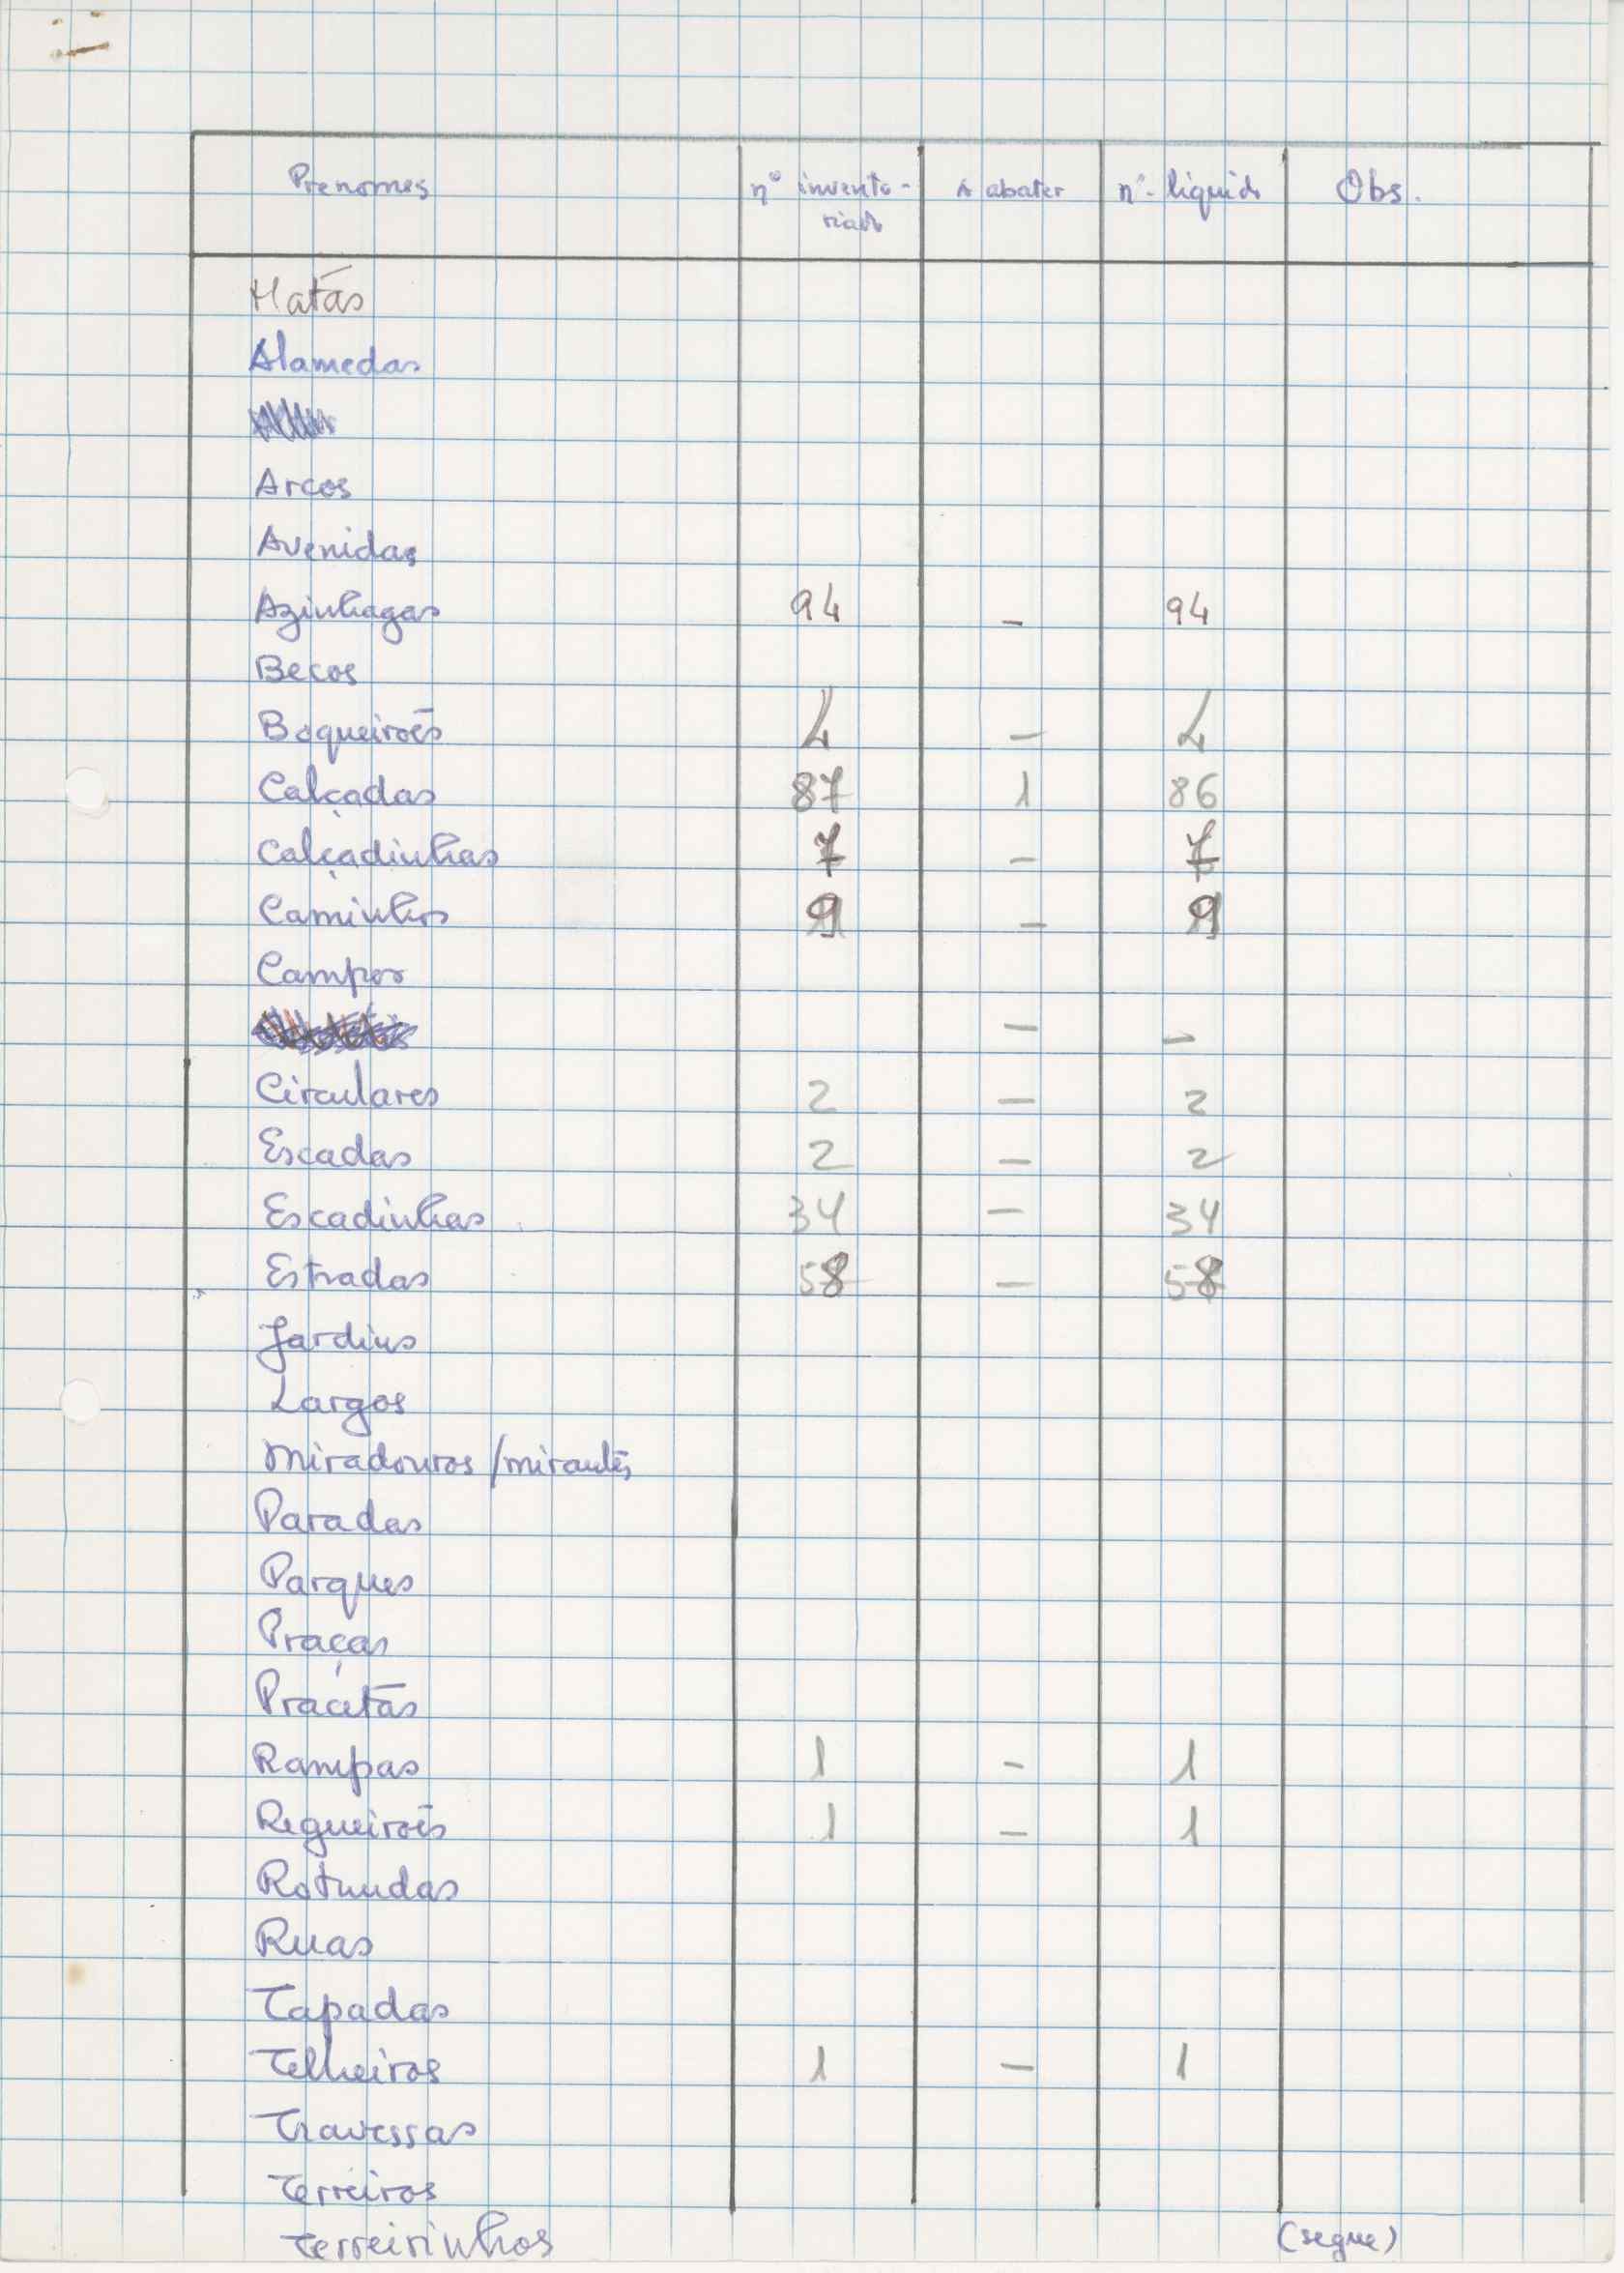 Prenomes nº invento- A abater nº líquido Obs.
riado
Matas
Alamedas
Arcos
Avenidas
Azinhagas 94 - 94
Becos
Boqueirões 4 - 4
Calçadas 87 1 86
Calçadinhas 7 - 7
Caminhos 9 - 9
Campos
- -
Circulares 2 - 2
Escadas 2 - 2
Escadinhas 34 - 34
Estradas 58 - 58
Jardins
Largos
Miradouros/mirantes
Paradas
Parques
Praças
Pracetas
Rampas 1 - 1
Regueirões 1 - 1
Rotundas
Ruas
Tapadas
Telheiros 1 - 1
Travessas
Terreiros
Terreirinhos (segue)